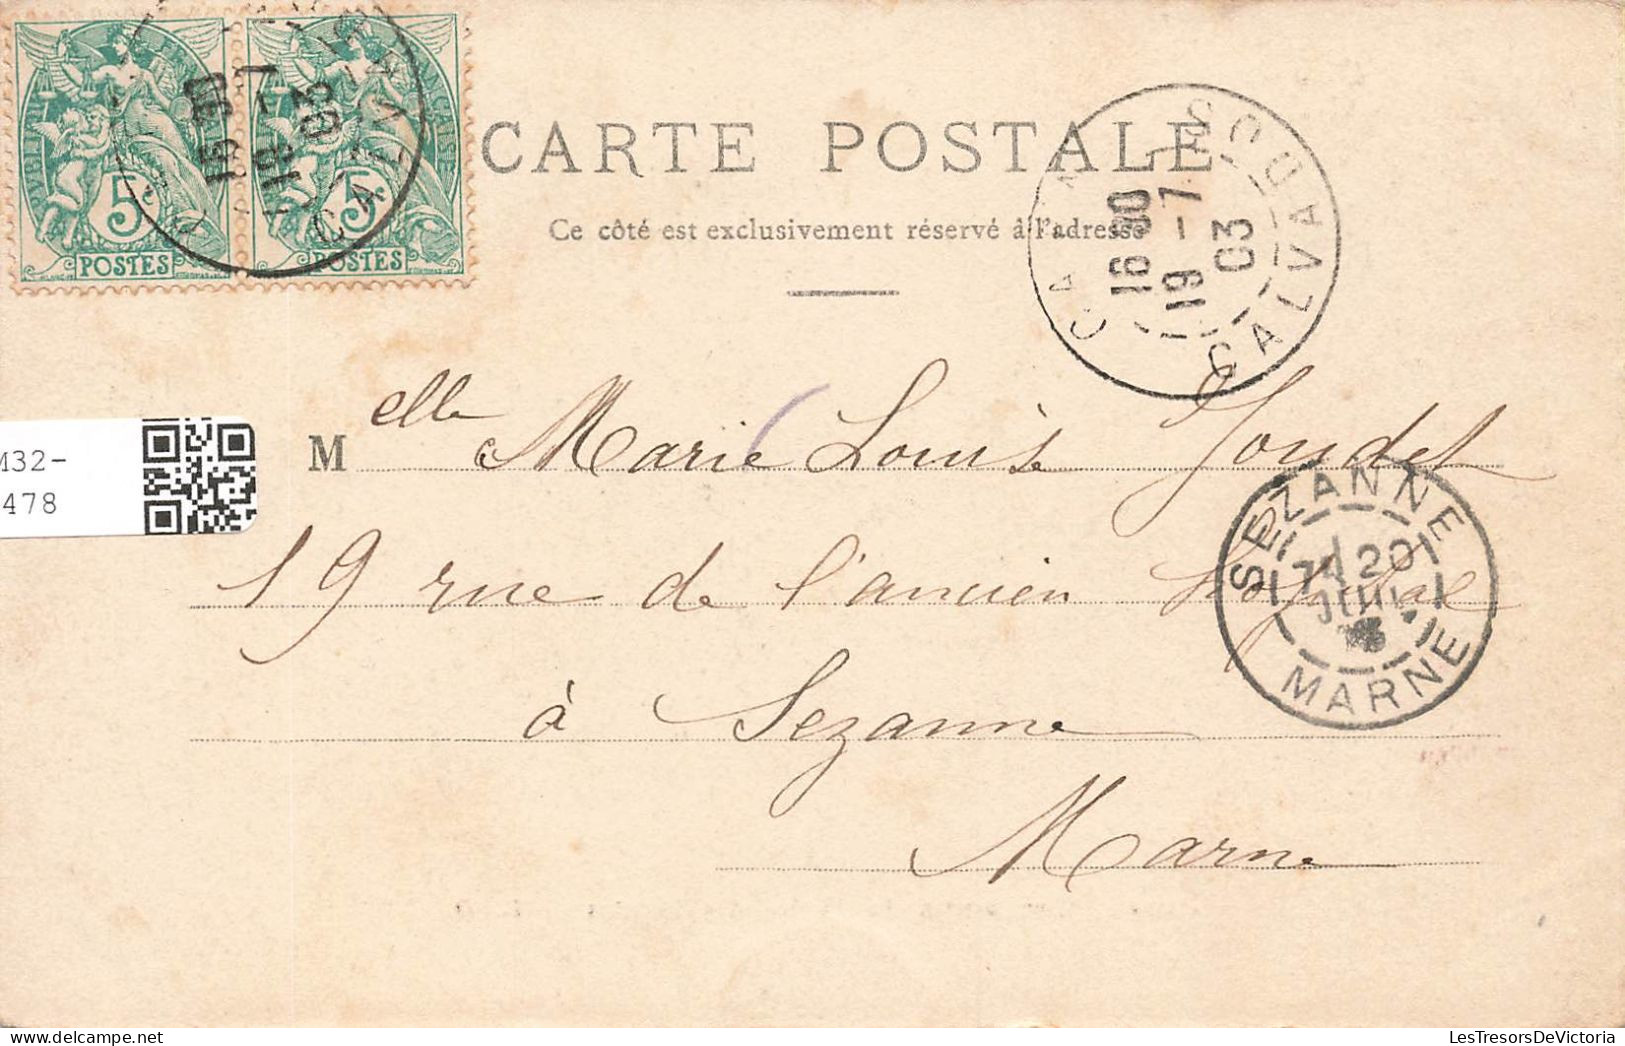 5c
POSTES
5c
POSTES
16 30
19 -7
03
CALVA
CARTE POSTALE
Ce côté est exclusivement réservé à l'adresse
CALVADOS
16 30
19 -7
03
M32-
478
Melle Marie Louise Joudet
19 rue de l'ancien hôpital
à Sezanne
Marne
SEZANNE
20
JUIL
MARNE
LesTresorsDeVictoria